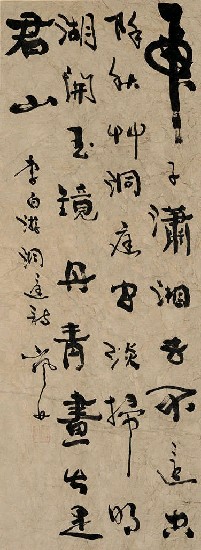 帝子瀟湘去不還空
餘秋艸洞庭間淡掃明
湖開玉鏡丹青畫出是
君山
李白游洞庭詩